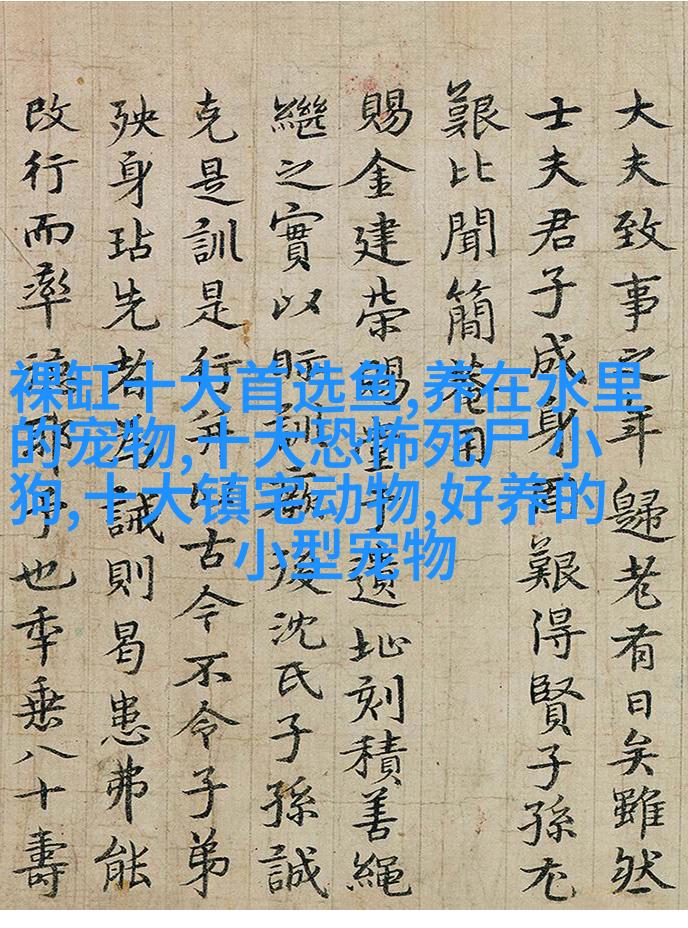 大夫致事之年歸老有日矣雖然
士夫君子成身艱得賢子孫尤
艱比聞簡菴用
賜金建榮賜堂于遺址刻積善繩
繼之實以貽後沈氏子孫誠
克是訓是行以古今不令子弟
殃身玷先者為誡則曷患弗能
改行而率德耶予也年垂八十壽
裸缸十大首选鱼,养在水里
的宠物,十大恐怖死尸 小
狗,十大镇宅动物,好养的
小型宠物